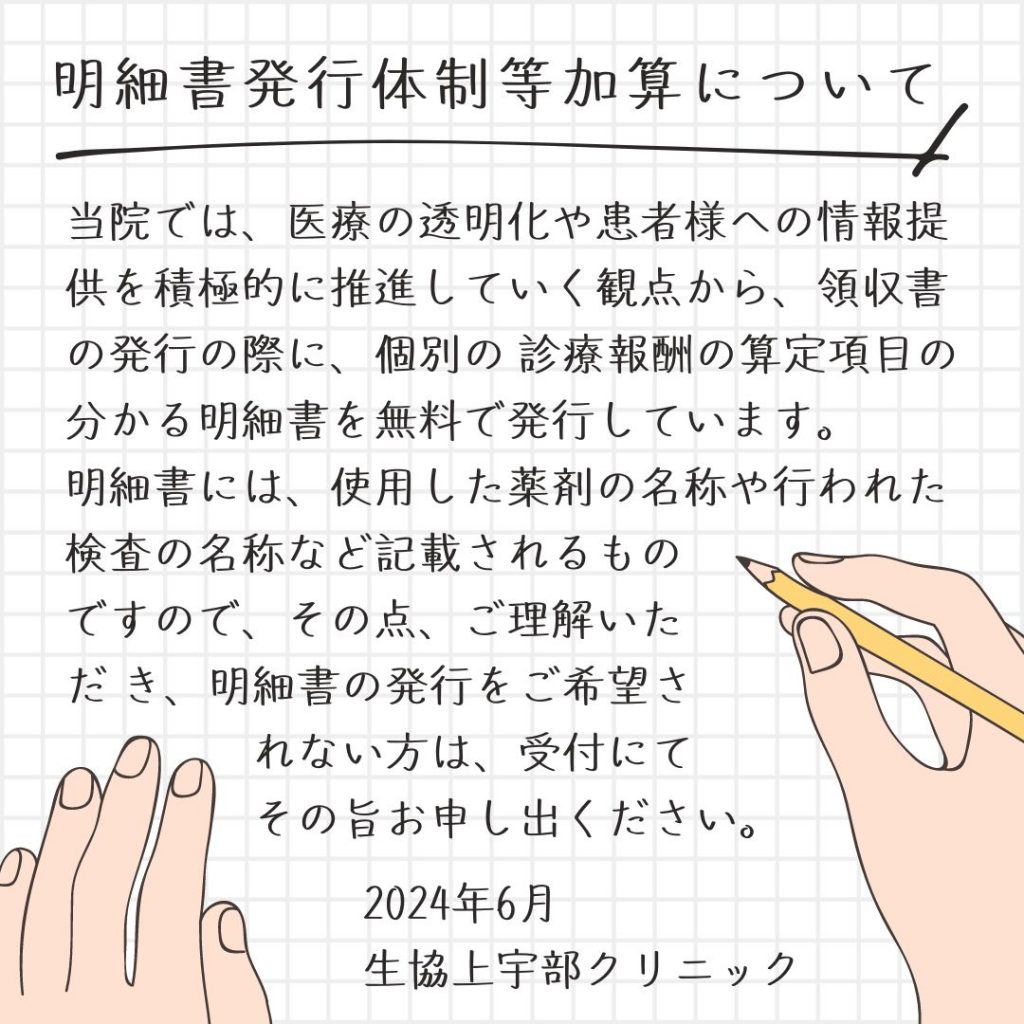 明細書発行体制等加算について
当院では、医療の透明化や患者様への情報提
供を積極的に推進していく観点から、領収書
の発行の際に、個別の 診療報酬の算定項目の
分かる明細書を無料で発行しています。
明細書には、使用した薬剤の名称や行われた
検査の名称など記載されるもの
ですので、その点、ご理解いた
だ き、明細書の発行をご希望さ
れない方は、受付にて
その旨お申し出ください。
2024年6月
生協上宇部クリニック